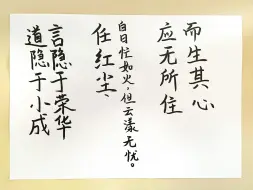 道隐于小成
言隐于荣华
任红尘、
白日忙如火，但云漾无忧。
应无所住
而生其心